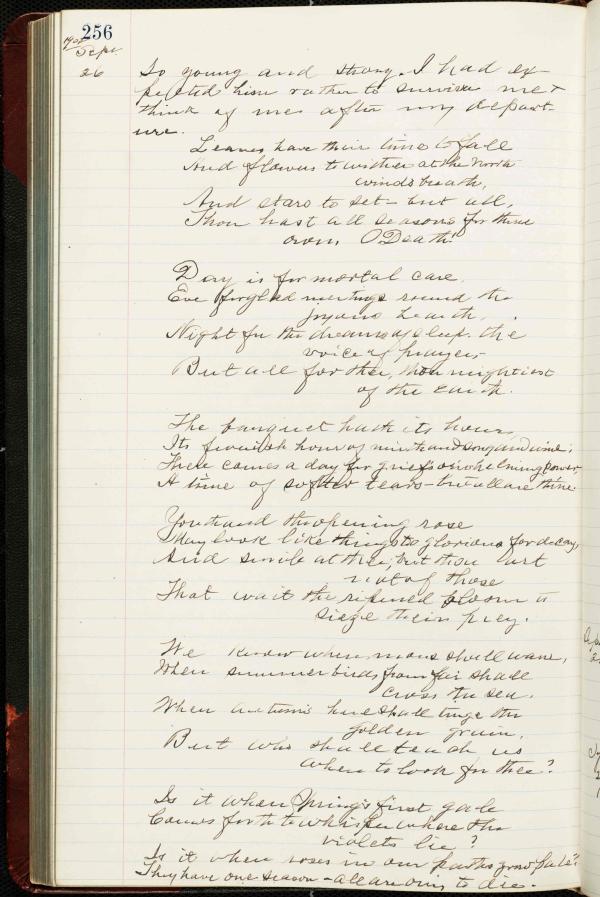 256
Sept.
26
So young and strong. I had ex-
pected him rather to survive me &
think of me after my depart-
ure.
Leaves have their time to fall
And flowers to wither at the North
winds breath,
And stars to set - but all,
Thou hast all seasons for thine
own, O Death!
Day is for mortal care.
Eve for glad meetings round the
joyous hearth,
Night for the dreams of sleep. the
voice of prayer
But all for thee, thou mightiest
of the Earth.
The banquet hath its hour,
Its feverish hour of mirth and song and wine;
There comes a day for grief's o'erwhelming power
A time of softer tears - but all are thine.
Youth and the opening rose
May look like things too glorious for decay,
And smile at thee, but thou art
not of those
That wait the ripened bloom to
sieze their prey.
We know when moons shall wane,
When summer birds from far shall
cross the sea.
When autumn's hue shall tinge the
golden grain,
But who shall teach us
when to look for thee?
Is it when Spring's first gale
Comes forth to whisper where the
violets lie?
Is it when roses in our paths grow pale?
They have one season - all are ours to die.